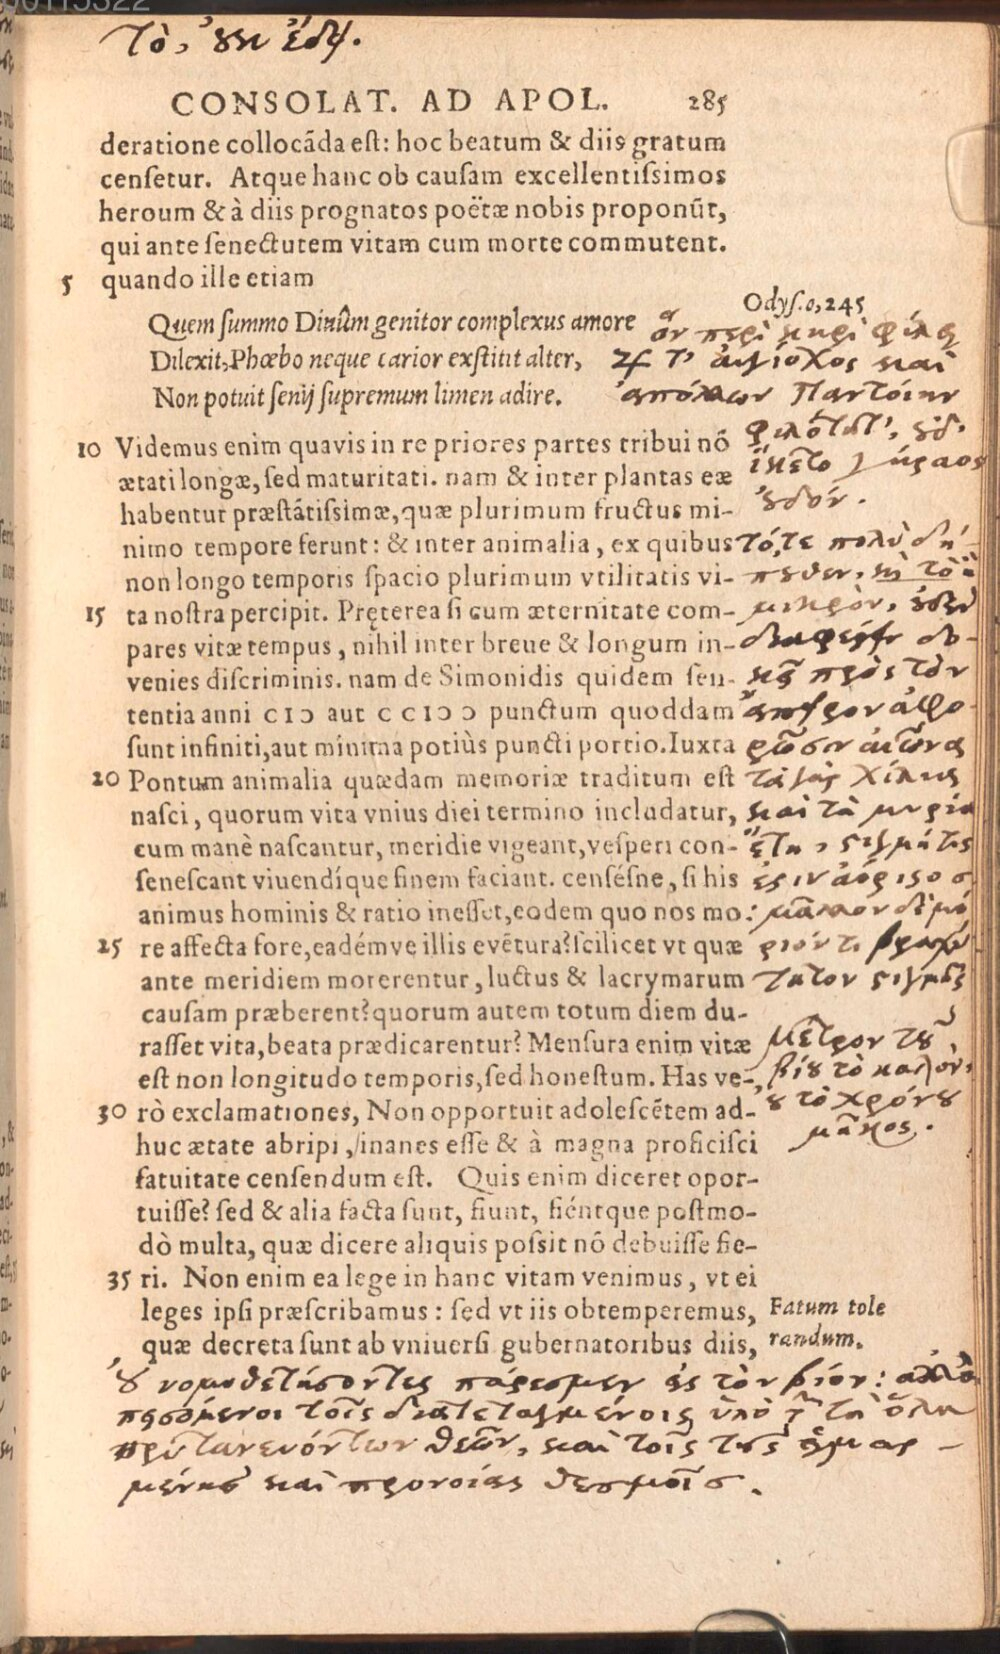 00115522
Τὸ, οὐκ ἔδει.
CONSOLAT. AD APOL. 285
deratione collocãda est: hoc beatum & diis gratum
censetur. Atque hanc ob causam excellentissimos
heroum & à diis prognatos poëtæ nobis proponũt,
qui ante senectutem vitam cum morte commutent.
5 quando ille etiam
Odys.o,245
Quem summo Diuûm genitor complexus amore
ὃν περὶ κηρὶ φίλει
Dilexit, Phœbo neque carior exstitit alter,
Ζεύς τ' αἰγίοχος καὶ
Non potuit senij supremum limen adire.
ἀπόλλων Παντοίην
φιλότητ', οὐδ'
10 Videmus enim quavis in re priores partes tribui nõ
ἵκετο γήραος
ætati longæ, sed maturitati. nam & inter plantas eæ
οὐδόν.
habentur præstãtissimæ, quæ plurimum fructus mi-
nimo tempore ferunt: & inter animalia, ex quibus
τό, τε πολὺ δή-
non longo temporis spacio plurimum vtilitatis vi-
πουθεν, ἢ τὸ
15 ta nostra percipit. Pręterea si cum æternitate com-
μικρὸν, οὐδὲν
pares vitæ tempus, nihil inter breue & longum in-
διαφέρειν δο-
venies discriminis. nam de Simonidis quidem sen-
κεῖ πρὸς τὸν
tentia anni CIↃ aut CCIↃↃ punctum quoddam
ἄπειρον ἀφο-
sunt infiniti, aut minima potiùs puncti portio. Iuxta
ρῶσιν αἰῶνα
20 Pontum animalia quædam memoriæ traditum est
τὰ γὰρ χίλια
nasci, quorum vita vnius diei termino includatur,
καὶ τὰ μυρία
cum manè nascantur, meridie vigeant, vesperi con-
ἔτη, στιγμή τις
senescant viuendíque finem faciant. censésne, si his
ἐστιν ἀόριστος
animus hominis & ratio inesset, eodem quo nos mo:
μᾶλλον δὲ μό
25 re affecta fore, eadémve illis evẽtura? scilicet vt quæ
ριόν τι βραχύ
ante meridiem morerentur, luctus & lacrymarum
τατον στιγμῆς
causam præberent? quorum autem totum diem du-
rasset vita, beata prædicarentur? Mensura enim vitæ
μέτρον τοῦ
est non longitudo temporis, sed honestum. Has ve-
βίου τὸ καλὸν,
30 rò exclamationes, Non opportuit adolescẽtem ad-
οὐ τὸ χρόνου
huc ætate abripi, inanes esse & à magna proficisci
μῆκος.
fatuitate censendum est. Quis enim diceret opor-
tuisse? sed & alia facta sunt, fiunt, fiéntque postmo-
dò multa, quæ dicere aliquis possit nõ debuisse fie-
35 ri. Non enim ea lege in hanc vitam venimus, vt ei
leges ipsi præscribamus: sed vt iis obtemperemus,
Fatum tole
quæ decreta sunt ab vniuersi gubernatoribus diis,
randum.
οὐ νομοθετήσοντες πάρεσμεν εἰς τὸν βίον: ἀλλὰ
πεισόμενοι τοῖς διατεταγμένοις ὑπὸ τῶν τὰ ὅλα
πρυτανευόντων θεῶν, καὶ τοῖς τῆς εἱμαρ-
μένης καὶ προνοίας θεσμοῖς.